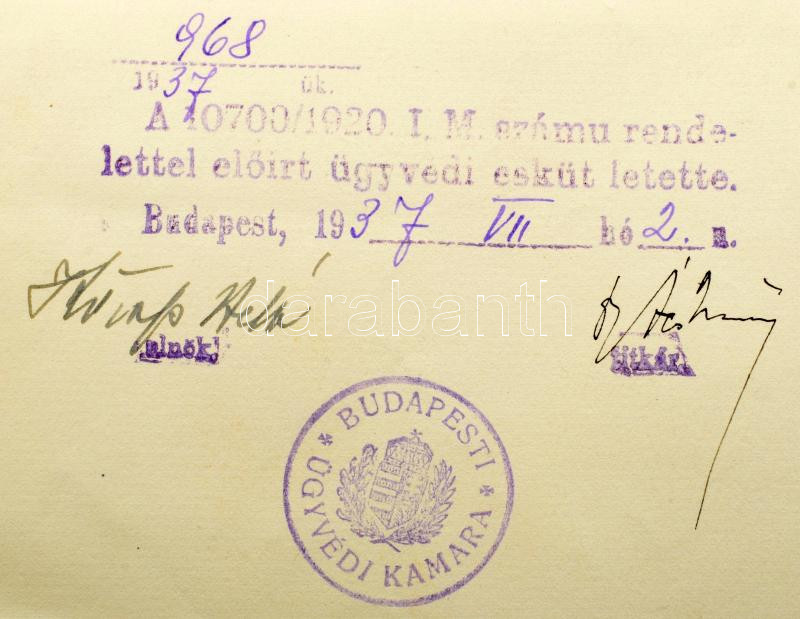 968
1937 ük.
A 10700/1920. I. M. számu rende-
lettel előirt ügyvedi esküt letette.
Budapest, 1937 VII hó 2. n.
elnök.
titkár.
darabanth
BUDAPESTI
ÜGYVÉDI KAMARA